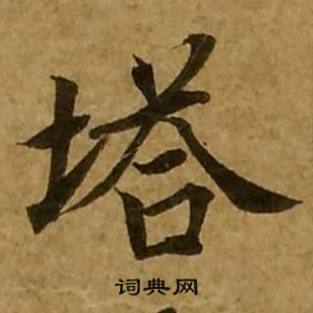 塔
词典网